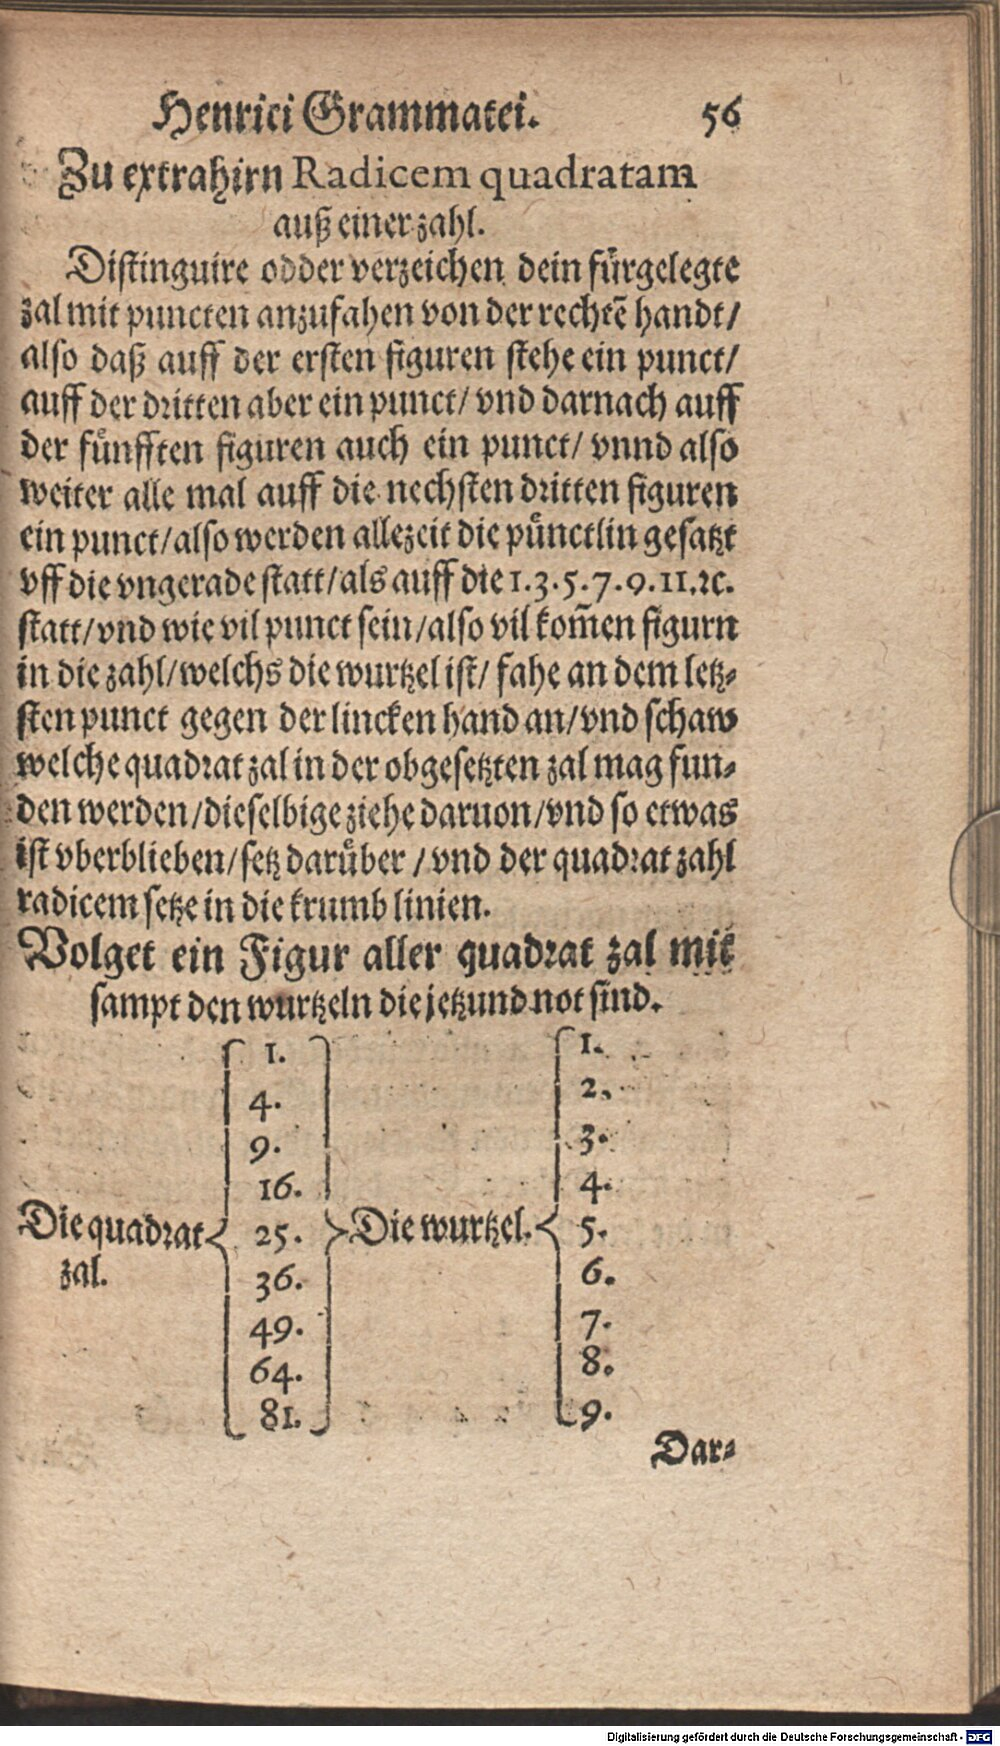 Henrici Grammatei. 56
Zu extrahirn Radicem quadratam
auß einer zahl.
Distinguire odder verzeichen dein fürgelegte
zal mit puncten anzufahen von der rechtē handt/
also daß auff der ersten figuren stehe ein punct/
auff der dritten aber ein punct/ vnd darnach auff
der fünfften figuren auch ein punct/ vnnd also
weiter alle mal auff die nechsten dritten figuren
ein punct/also werden allezeit die pünctlin gesatzt
vff die vngerade statt/als auff die 1.3.5.7.9.11.ꝛc.
statt/vnd wie vil punct sein/also vil kom̄en figurn
in die zahl/welchs die wurtzel ist/ fahe an dem letz-
sten punct gegen der lincken hand an/vnd schaw
welche quadrat zal in der obgesetzten zal mag fun-
den werden/dieselbige ziehe daruon/vnd so etwas
ist vberblieben/setz darüber / vnd der quadrat zahl
radicem setze in die krumb linien.
Volget ein Figur aller quadrat zal mit
sampt den wurtzeln die jetzund not sind.
1. 1.
4. 2.
9. 3.
16. 4.
Die quadrat 25. Die wurtzel. 5.
zal. 36. 6.
49. 7.
64. 8.
81. 9.
Dar-
Digitalisierung gefördert durch die Deutsche Forschungsgemeinschaft - DFG